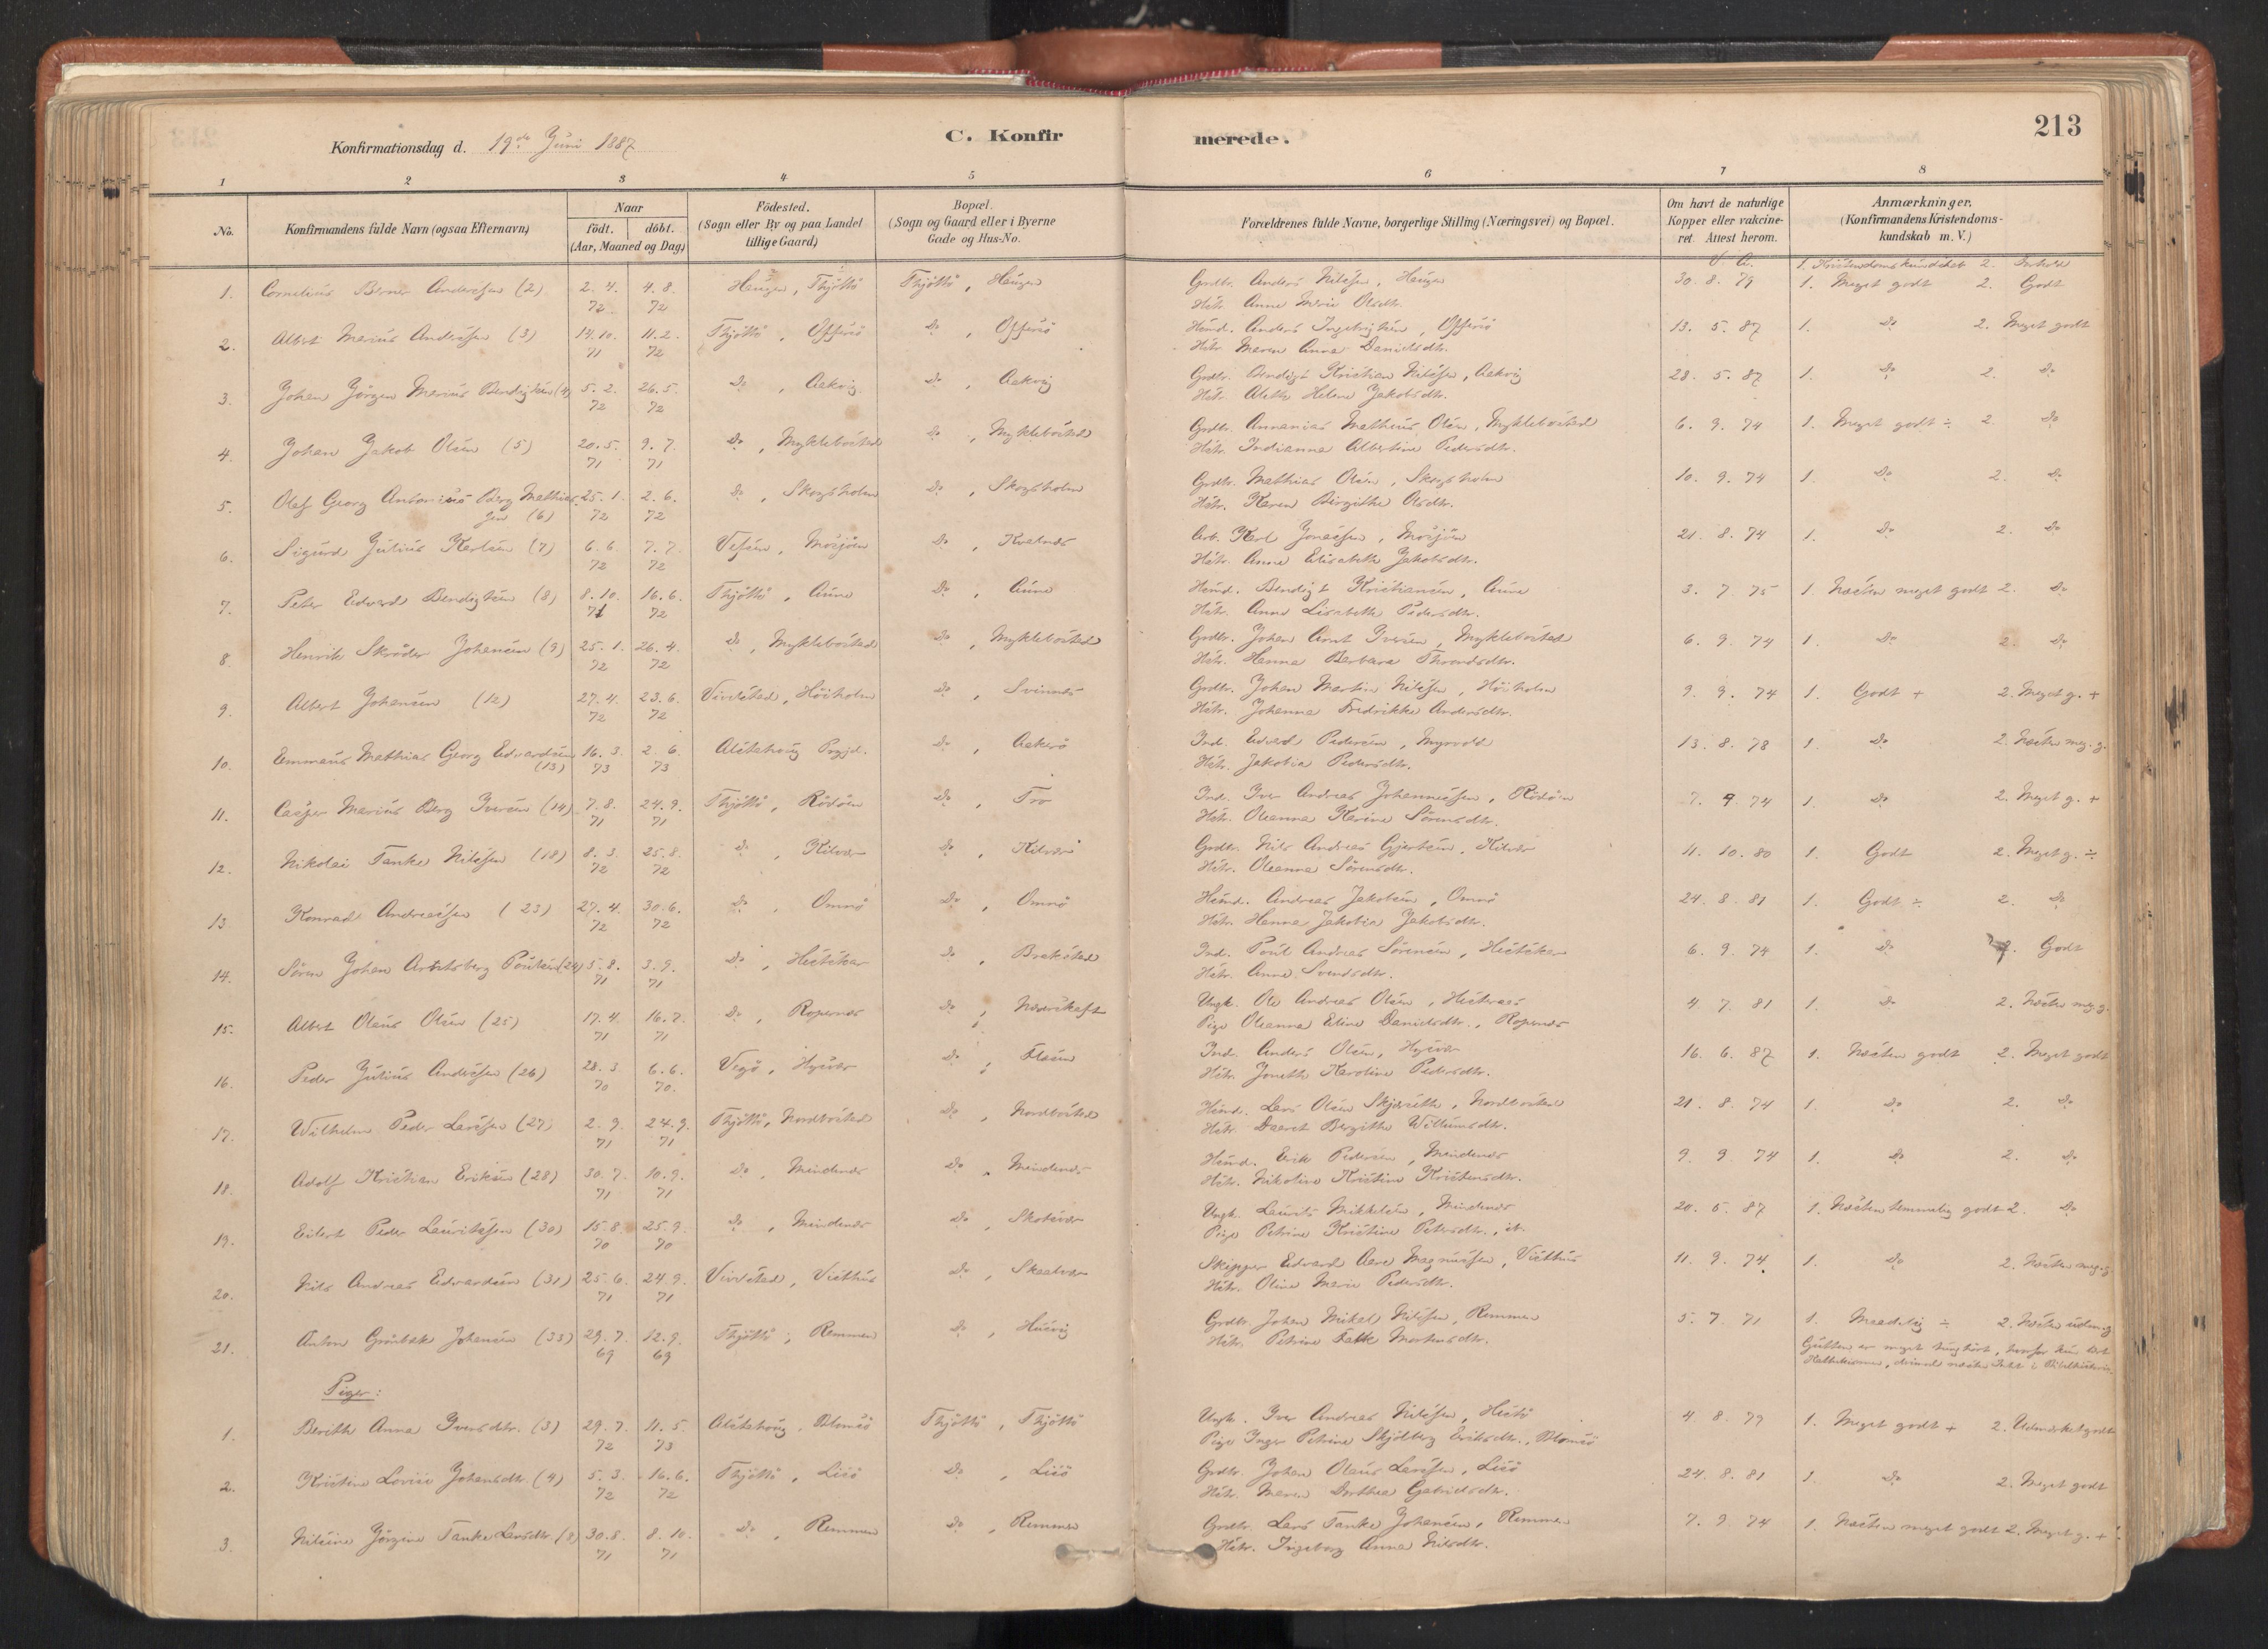 213
Konfirmationsdag d. 19de Juni 1887
C. Konfirmerede.
1 2 3 4 5 6 7 8
No.
Konfirmandens fulde Navn (ogsaa Efternavn)
Naar
födt. döbt.
(Aar, Maaned og Dag)
Födested.
(Sogn eller By og paa Landet
tillige Gaard)
Bopæl.
(Sogn og Gaard eller i Byerne
Gade og Hus-No.
Forældrenes fulde Navne, borgerlige Stilling (Næringsvei) og Bopæl.
Om havt de naturlige
Kopper eller vakcine-
ret. Attest herom.
Anmærkninger.
(Konfirmandens Kristendoms-
kundskab m. V.)
V. A. 1. Kristendomskundskab 2. Forhold
1. Cornelius Berner Anderssen (2) 2. 4. 72 4. 8. 72 Haugen, Thjöttö Thjöttö, Haugen
Grdbr. Anders Nilssen, Haugen 30. 8. 79 1. Meget godt 2. Godt
Hstr. Anne Marie Olsdtr.
2. Albert Marius Anderssen (3) 14. 10. 71 11. 2. 72 Thjöttö, Offersö Do, Offersö
Husmd. Anders Ingebrigtsen, Offersö 13. 5. 87 1. Do 2. Meget godt
Hstr. Maren Anna Danielsdtr.
3. Johan Jörgen Marius Bendigtsen (4) 5. 2. 72 26. 5. 72 Do, Aakvig Do, Aakvig
Grdbr. Bendigt Kristian Nilssen, Aakvig 28. 5. 87 1. Do 2. Do
Hstr. Aleth Helene Jakobsdtr.
4. Johan Jakob Olsen (5) 20. 5. 71 9. 7. 71 Do, Myklebostad Do, Myklebostad
Grdbr. Annanias Matheus Olsen, Myklebostad 6. 9. 74 1. Meget godt ÷ 2. Do
Hstr. Indianna Albertine Pedersdtr.
5. Olaf Georg Antonius Berg Mathias
sen (6) 25. 1. 72 2. 6. 72 Do, Skogsholm Do, Skogsholm
Grdbr. Matthias Olsen, Skogsholm 10. 9. 74 1. Do 2. Do
Hstr. Karen Birgithe Olsdtr.
6. Sigurd Julius Karlsen (7) 6. 6. 72 7. 7. 72 Vefsen, Mosjöen Do, Kvalnes
Arb. Karl Jonassen, Mosjöen 21. 8. 74 1. Do 2. Do
Hstr. Anne Elisabeth Jakobsdtr.
7. Peter Edvard Bendigtsen (8) 8. 10. 71 16. 6. 72 Thjöttö, Aune Do, Aune
Husmd. Bendigt Kristiansen, Aune 3. 7. 75 1. Næsten meget godt 2. Do
Hstr. Anne Lisabeth Pedersdtr.
8. Henrik Skröder Johansen (9) 25. 1. 72 26. 4. 72 Do, Myklebostad Do, Myklebostad
Grdbr. Johan Arnt Iversen, Myklebostad 6. 9. 74 1. Do 2. Do
Hstr. Hanna Barbara Throndsdtr.
9. Albert Johansen (12) 27. 4. 72 23. 6. 72 Vivelstad, Höiholm Do, Svinnes
Grdbr. Johan Martin Nilssen, Höiholm 9. 9. 74 1. Godt + 2. Meget g. +
Hstr. Johanna Fredrikke Andersdtr.
10. Emmaus Mathias Georg Edvardsen
(13) 16. 3. 73 2. 6. 73 Alstahoug Prgjd. Do, Aakerö
Ind. Edvard Pedersen, Myrvold 13. 8. 78 1. Do 2. Næsten meg. g.
Hstr. Jakobia Pedersdtr.
11. Casper Marius Berg Iversen (14) 7. 8. 71 24. 9. 71 Thjöttö, Rödöen Do, Tro
Ind. Iver Andreas Johannessen, Rödöen 7. 9. 74 1. Do 2. Meget g. +
Hstr. Oleanna Karine Sörensdtr.
12. Nikolai Tanke Nilssen (18) 8. 3. 72 25. 8. 72 Do, Kilvær Do, Kilvær
Grdbr. Nils Andreas Gjertsen, Kilvær 11. 10. 80 1. Godt 2. Meget g. ÷
Hstr. Oleanna Sörensdtr.
13 Konrad Andreassen (23) 27. 4. 72 30. 6. 72 Do, Omnö Do, Omnö
Husmd. Andreas Jakobsen, Omnö 24. 8. 81 1. Godt ÷ 2. Do
Hstr. Hanna Jakobia Jakobsdtr.
14. Sören Johan Arntsberg Poulsen (24) 5. 8. 71 3. 9. 71 Do, Hestskar Do, Brakstad
Ind. Poul Andreas Sörensen, Hestskar 6. 9. 74 1. Do 2. Godt
Hstr. Anne Svendsdtr.
15. Albert Olaus Olsen (25) 17. 4. 71 16. 7. 71 Do, Ropernes Do,
Ungk. Ole Andreas Olsen, 4. 7. 81 1. Do 2. Næsten meg. g.
Pige Oleanna Eline Danielsdtr., Ropernes
16. Peder Julius Anderssen (26) 28. 3. 70 6. 6. 70. Vegö, Hysvær Do,
Ind. Anders Olsen, Hysvær 16. 6. 87 1. Næsten godt 2. Meget godt
Hstr. Joneth Karoline Pedersdtr.
17. Wilhelm Peder Larssen (27) 2. 9. 71 24. 9. 71 Thjöttö, Nordbostad Do, Nordbostad
Husmd. Lars Olsen Skjerseth, Nordbostad 21. 8. 74 1. Do 2. Do
Hstr. Daaret Bergitha Willumsdtr.
18. Adolf Kristian Eriksen (28) 30. 7. 71 10. 9. 71 Do, Mindenes Do, Mindenes
Husmd. Erik Pedersen, Mindenes 9. 9. 74 1. Do 2. Do
Hstr. Nikoline Kristine Kristensdtr.
19. Eilert Peder Lauritssen (30) 15. 8. 70 25. 9. 70 Do, Mindenes Do, Skotsvær
Ungk. Laurits Mikkelsen, Mindenes 20. 5. 87 1. Næsten temmelig godt 2. Do
Pige Petrine Kristine Petersdtr., ib.
20. Nils Andreas Edvardsen (31) 25. 6. 71 24. 9. 71 Vivelstad, Visthus Do, Skaalvær
Skipper Edvard Aare Magnussen, Visthus 11. 9. 74. 1. Do 2. Næsten meg. g.
Hstr. Oline Marie Pedersdtr.
21. Anton Grönbek Johansen (33) 29. 7. 69 12. 9. 69 Thjöttö, Remmen Do, Husvig
Grdbr. Johan Mikal Nilssen, Remmen 5. 7. 71 1. Maadelig ÷ 2. Næsten udm. g
Hstr. Petrine Falk Mortensdtr.
Gutten er meget tunghört, hvorfor kun lært
Katekismen, næsten Intet i Bibelhistorien.
Piger:
1. Berith Anna Iversdtr. (3) 29. 7. 72 11. 5. 73 Alstahoug, Blomsö Thjöttö, Thjöttö
Ungk. Iver Andreas Nilssen, 4. 8. 79 1. Meget godt + 2. Udmærket godt
Pige Inger Petrine Skjölberg Eriksdtr., Blomsö
2. Kristine Lovise Johansdtr. (4) 5. 3. 72 16. 6. 72 Thjöttö, Lisö Do, Lisö
Grdbr. Johan Olaus Larssen, Lisö 24. 8. 81 1. Do 2. Meget godt
Hstr. Maren Dorthea Gabrielsdtr.
3. Nilsine Jörgine Tanke Larsdtr. (8) 30. 8. 71 8. 10. 71 Do, Remmen Do, Remmen
Grdbr. Lars Tanke Johansen, Remmen 7. 9. 74 1. Næsten meget godt 2. Meget g. +
Hstr. Ingeborg Anna Nilsdtr.